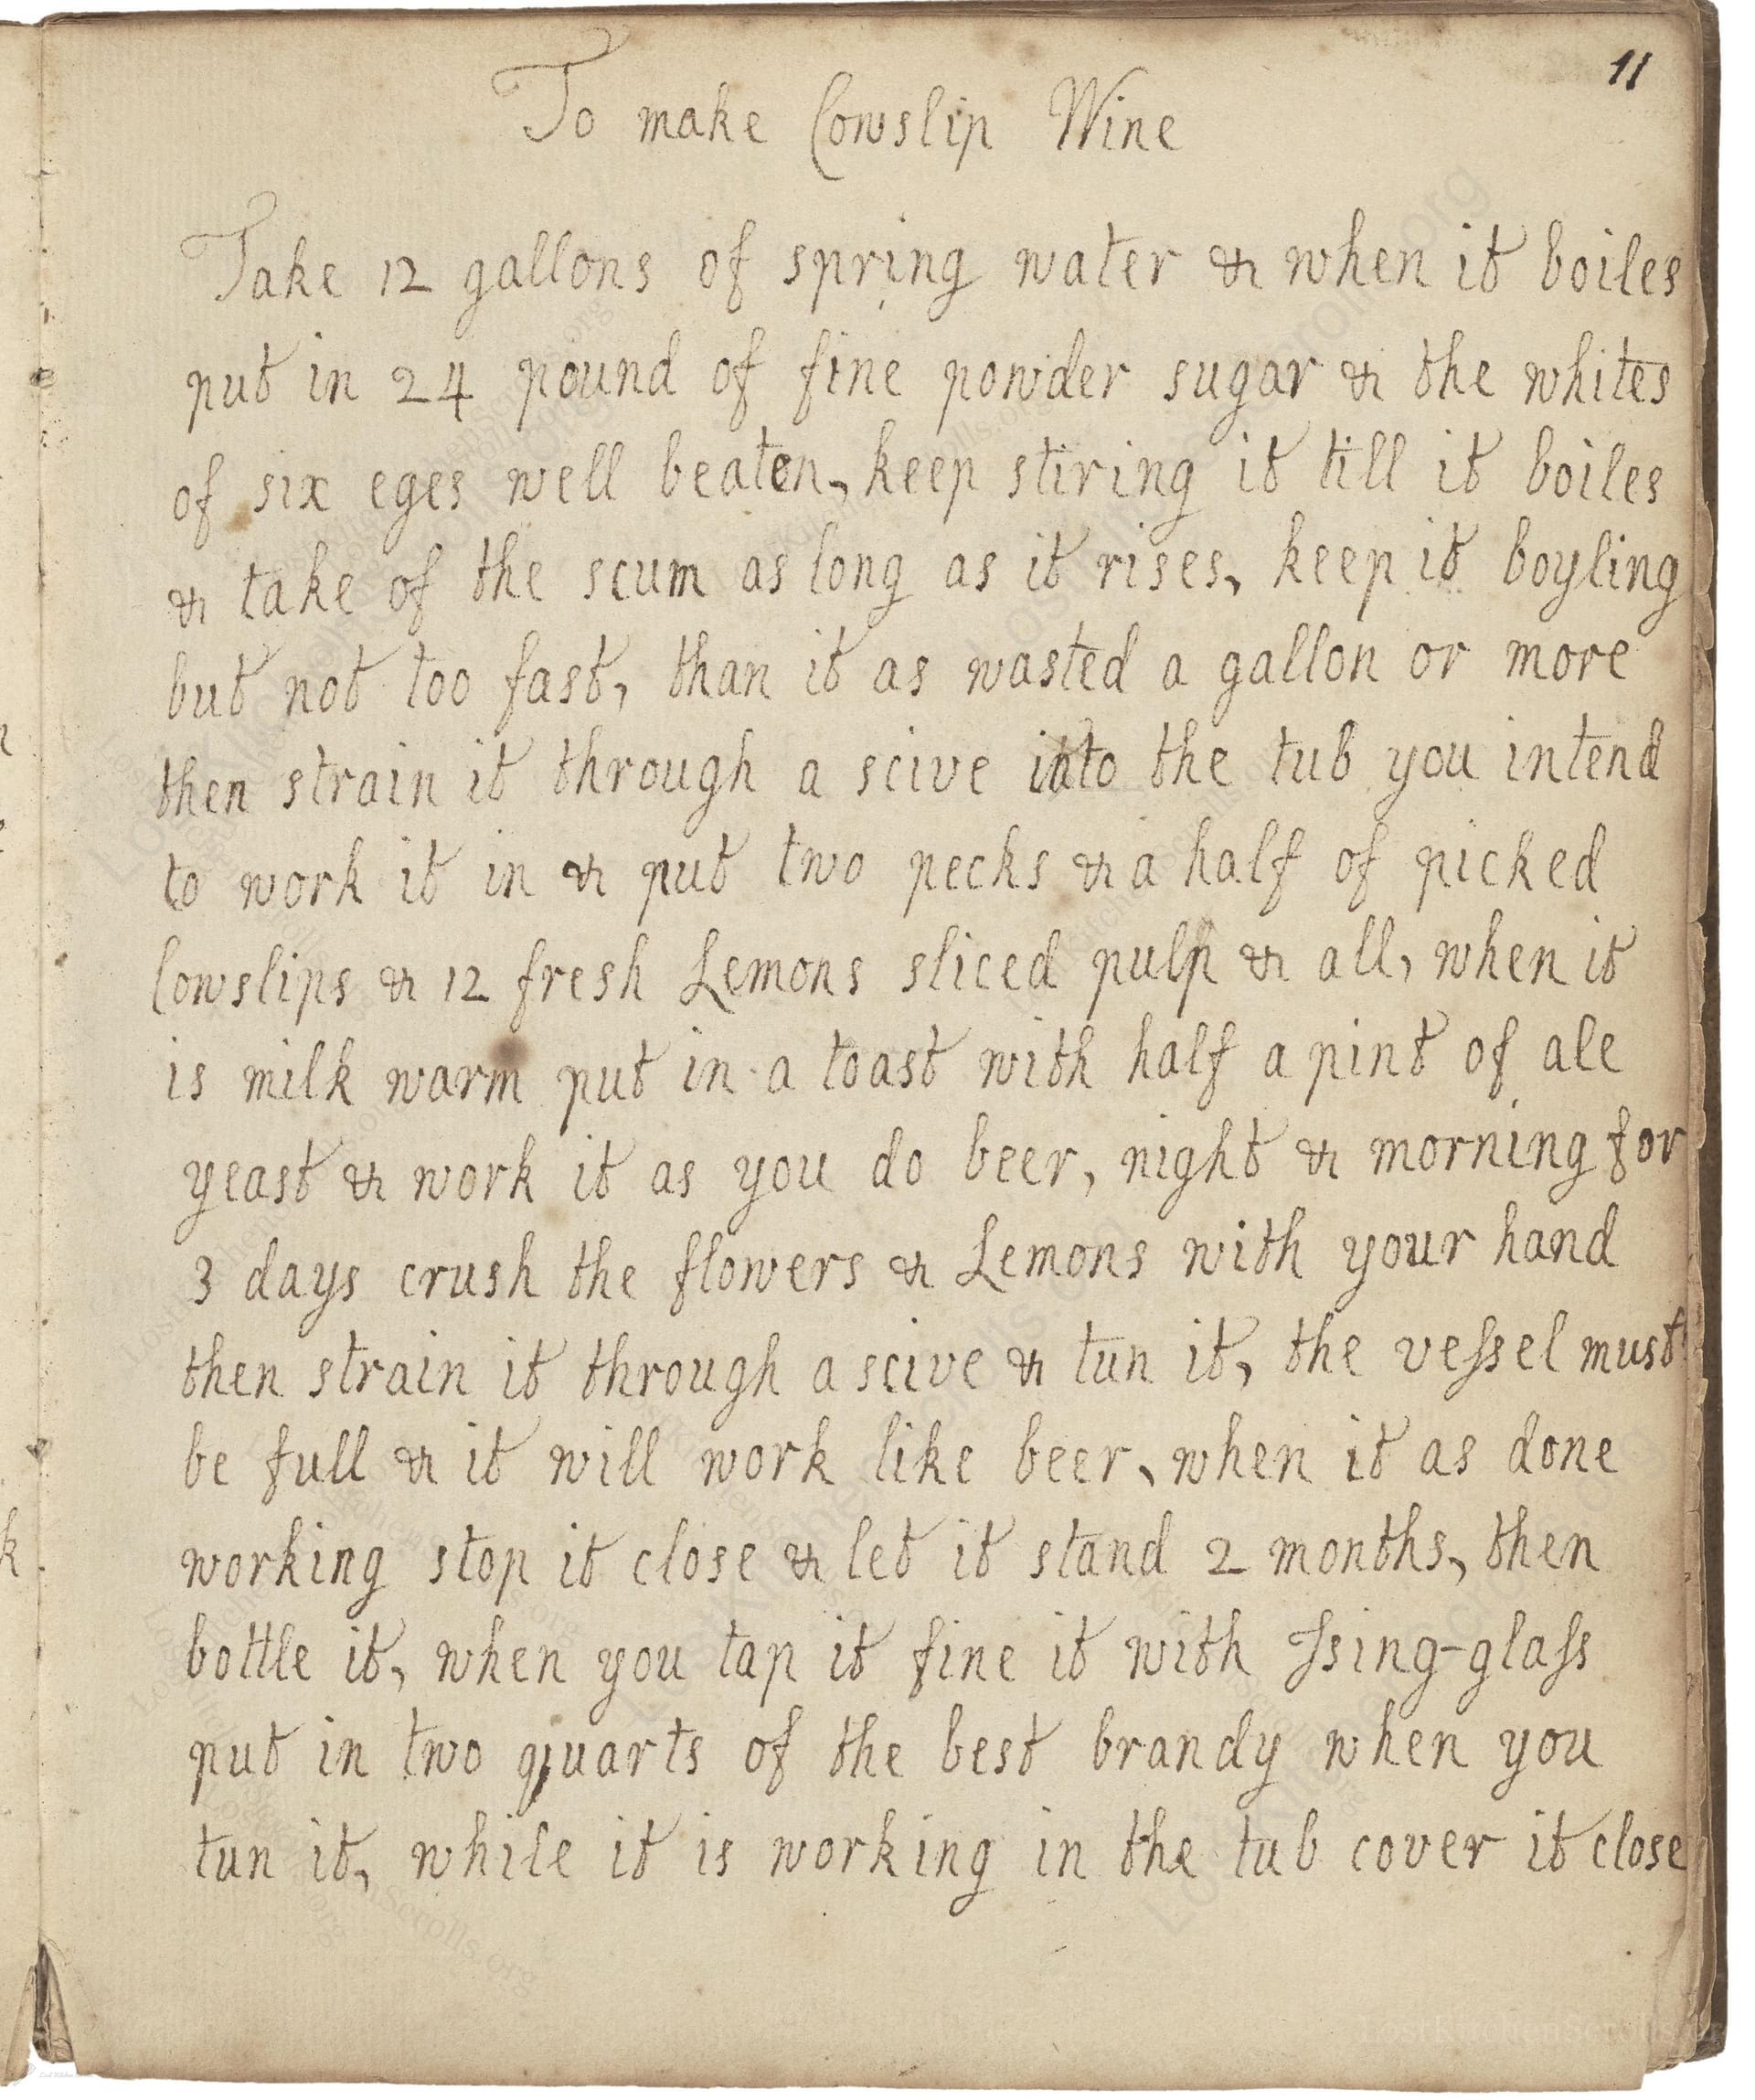 11
To make Cowslip Wine
Take 12 gallons of spring water & when it boiles
put in 24 pound of fine powder sugar & the whites
of six eges well beaten, keep stiring it till it boiles
& take of the scum as long as it rises, keep it boyling
but not too fast, than it as wasted a gallon or more
then strain it through a scive into the tub you intend
to work it in & put two pecks & a half of picked
Cowslips & 12 fresh Lemons sliced pulp & all, when it
is milk warm put in a toast with half a pint of ale
yeast & work it as you do beer, night & morning for
3 days crush the flowers & Lemons with your hand
then strain it through a scive & tun it, the veſsel must
be full & it will work like beer, when it as done
working stop it close & let it stand 2 months, then
bottle it, when you tap it fine it with Jsing-glaſs
put in two quarts of the best brandy when you
tun it, while it is working in the tub cover it close